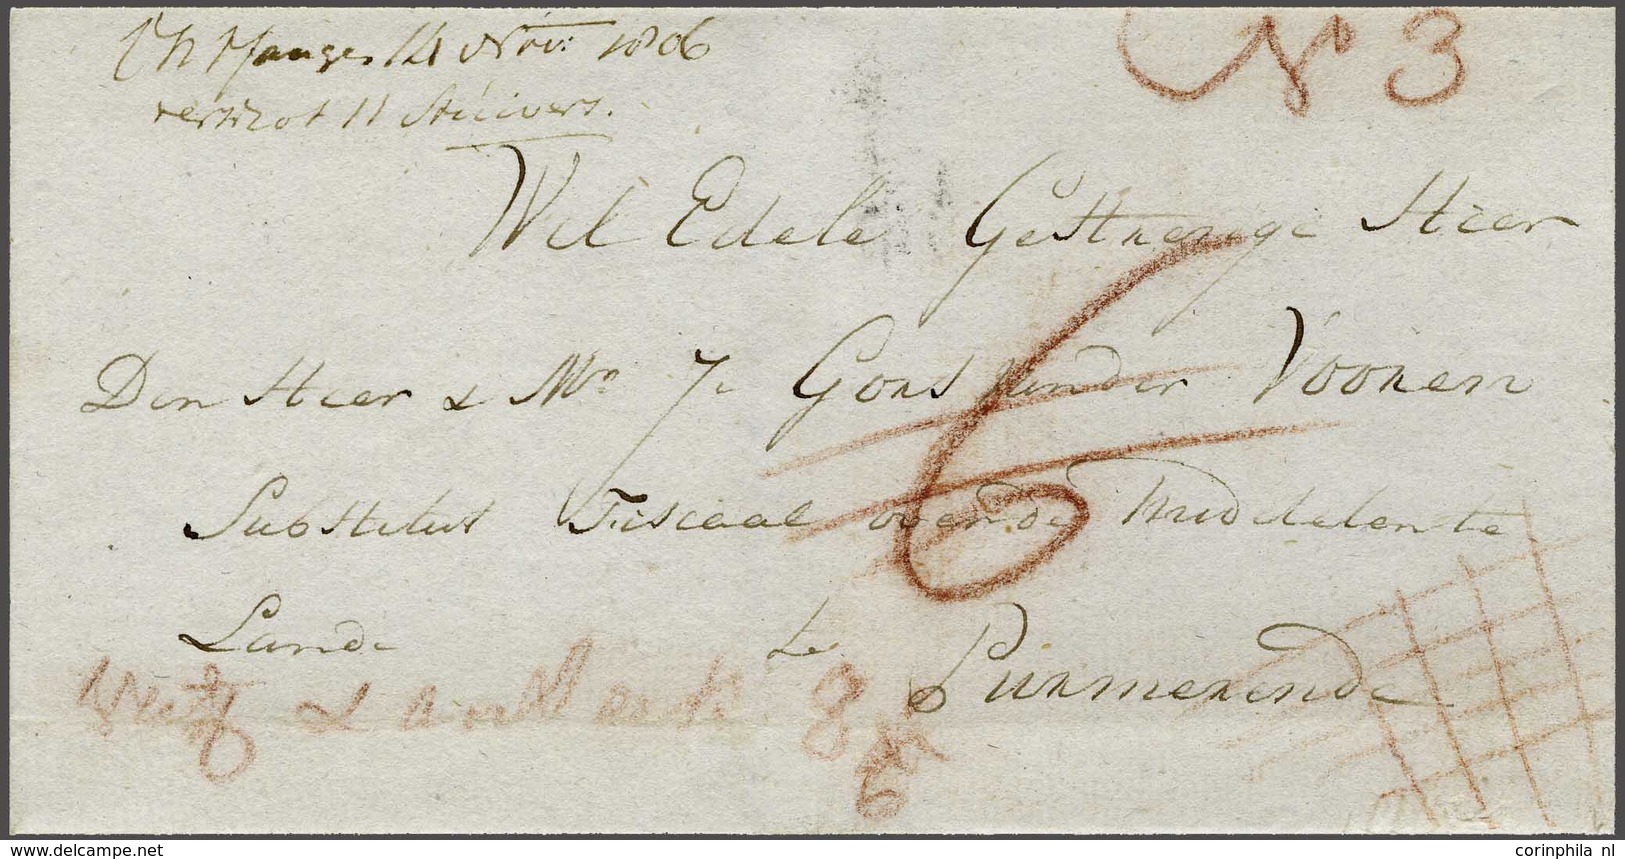 ontfangen 14 Novr 1806
No 3
verschot 11 Stuivers.
Wel Edele Gestrenge Heer
Den Heer & Mr J: Gors vander Vooren
Substitut Fiscaal over de Middelen te
Lande te Purmerende
6
8
6
www.delcampe.net
corinphila nl